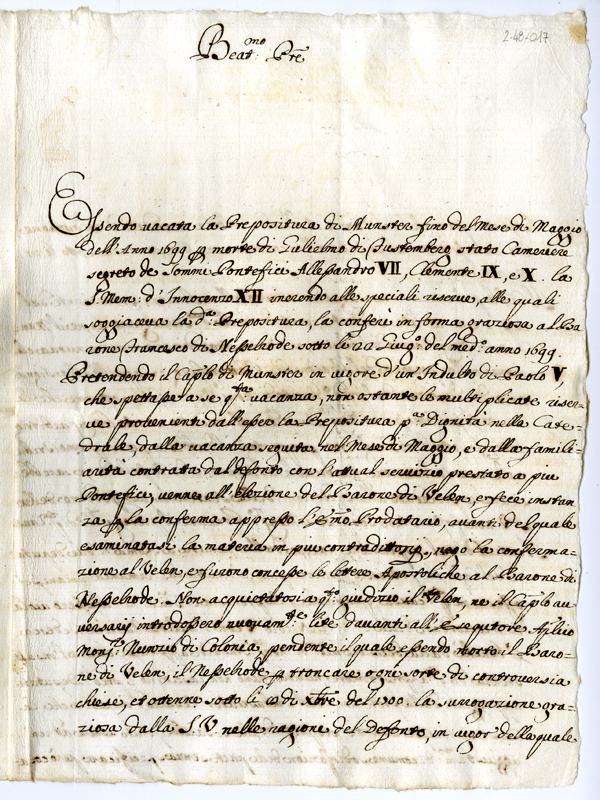 2-48-017
Beat.mo Pre
Essendo vacata la Prepositura di Munster fino del Mese di Maggio
dell'Anno 1699 p morte di Gulielmo di Fustemberg stato Cameriere
segreto de Sommi Pontefici Allessandro VII, Clemente IX, e X. la
S. Mem: d'Innocenzo XII inerendo alle speciali riserve, alle quali
soggiaceva la d.a Prepositura, la conferì in forma graziosa al Ba
rone Francesco di Nesselrode sotto li 22 Lug.o del med.o anno 1699.
Pretendendo il Caplo di Munster in vigore d'un Indulto di Paolo V,
che spettasse a se q.sta vacanza, non ostante le multiplicate riser-
ve provenienti dall'esser la Prepositura p.a Dignità nella Cate-
drale, dalla vacanza seguita nel Mese di Maggio, e dalla famili-
arità contratta dal defonto con l'attual servizio prestato a piu
Pontefici, venne all'elezione del Barone di Velen, e fece instan
za p la conferma appresso l'Emo Prodatario, avanti del quale
esaminatasi la materia in piu contradittorij, negò la conferma-
zione al Velen, e furono concesse le lettere Apostoliche al Barone di
Nesselrode. Non acquietatosi a q.to giudizio il Velen, ne il Caplo au
versarij introdossero nuovam.te lite davanti all'Esequtore Aplico
Mons.r Nunzio di Colonia, pendente il quale essendo morto il Baro=
ne di Velen, il Nesselrode p troncare ogni sorte di controversia
chiese, et ottenne sotto li di Xbre del 1700. la surrogazione gra-
ziosa dalla S. V. nelle ragioni del Defonto, in vigor della quale